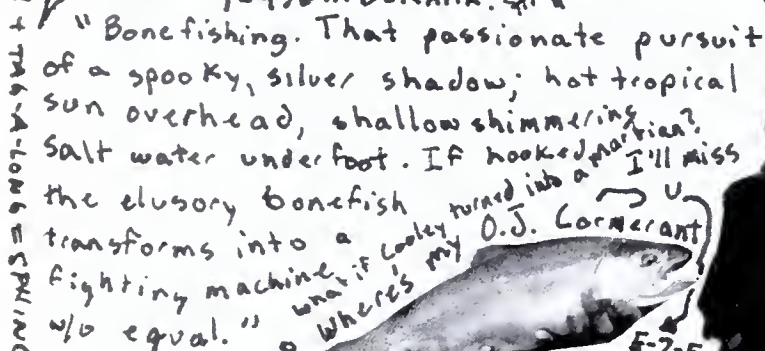 "Bonefishing. That passionate pursuit
of a spooky, silver shadow; hot tropical
sun overhead, shallow shimmering
salt water underfoot. If hooked,
the elusory bonefish
transforms into a
fighting machine
w/o equal."
what if cooley turned into a martian?
I'll miss U
Where's my O.J. Cormerant
+ TAG-A-LONG =